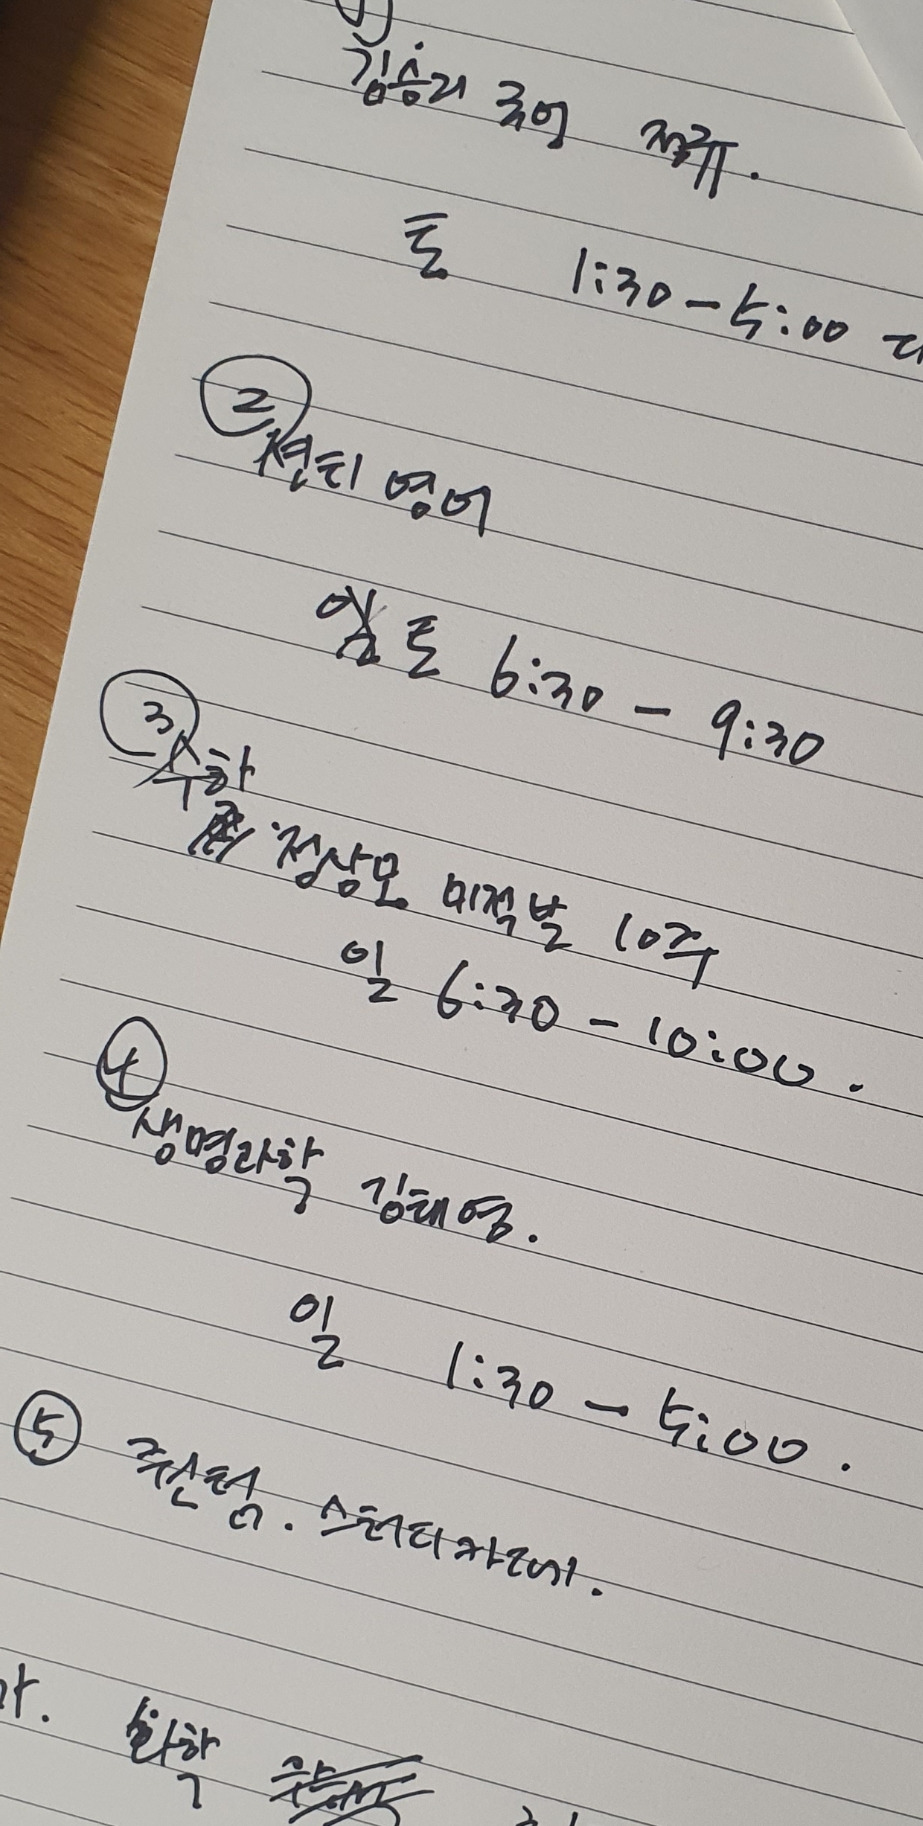 김승리 국어
토 1:30-5:00
②
션티 영어
토 6:30 - 9:30
③
수학
정상모 미적반 10주
일 6:30 - 10:00.
④
생명과학 김태영.
일 1:30 - 5:00.
⑤ 주산텀. 스터디카페.
화학